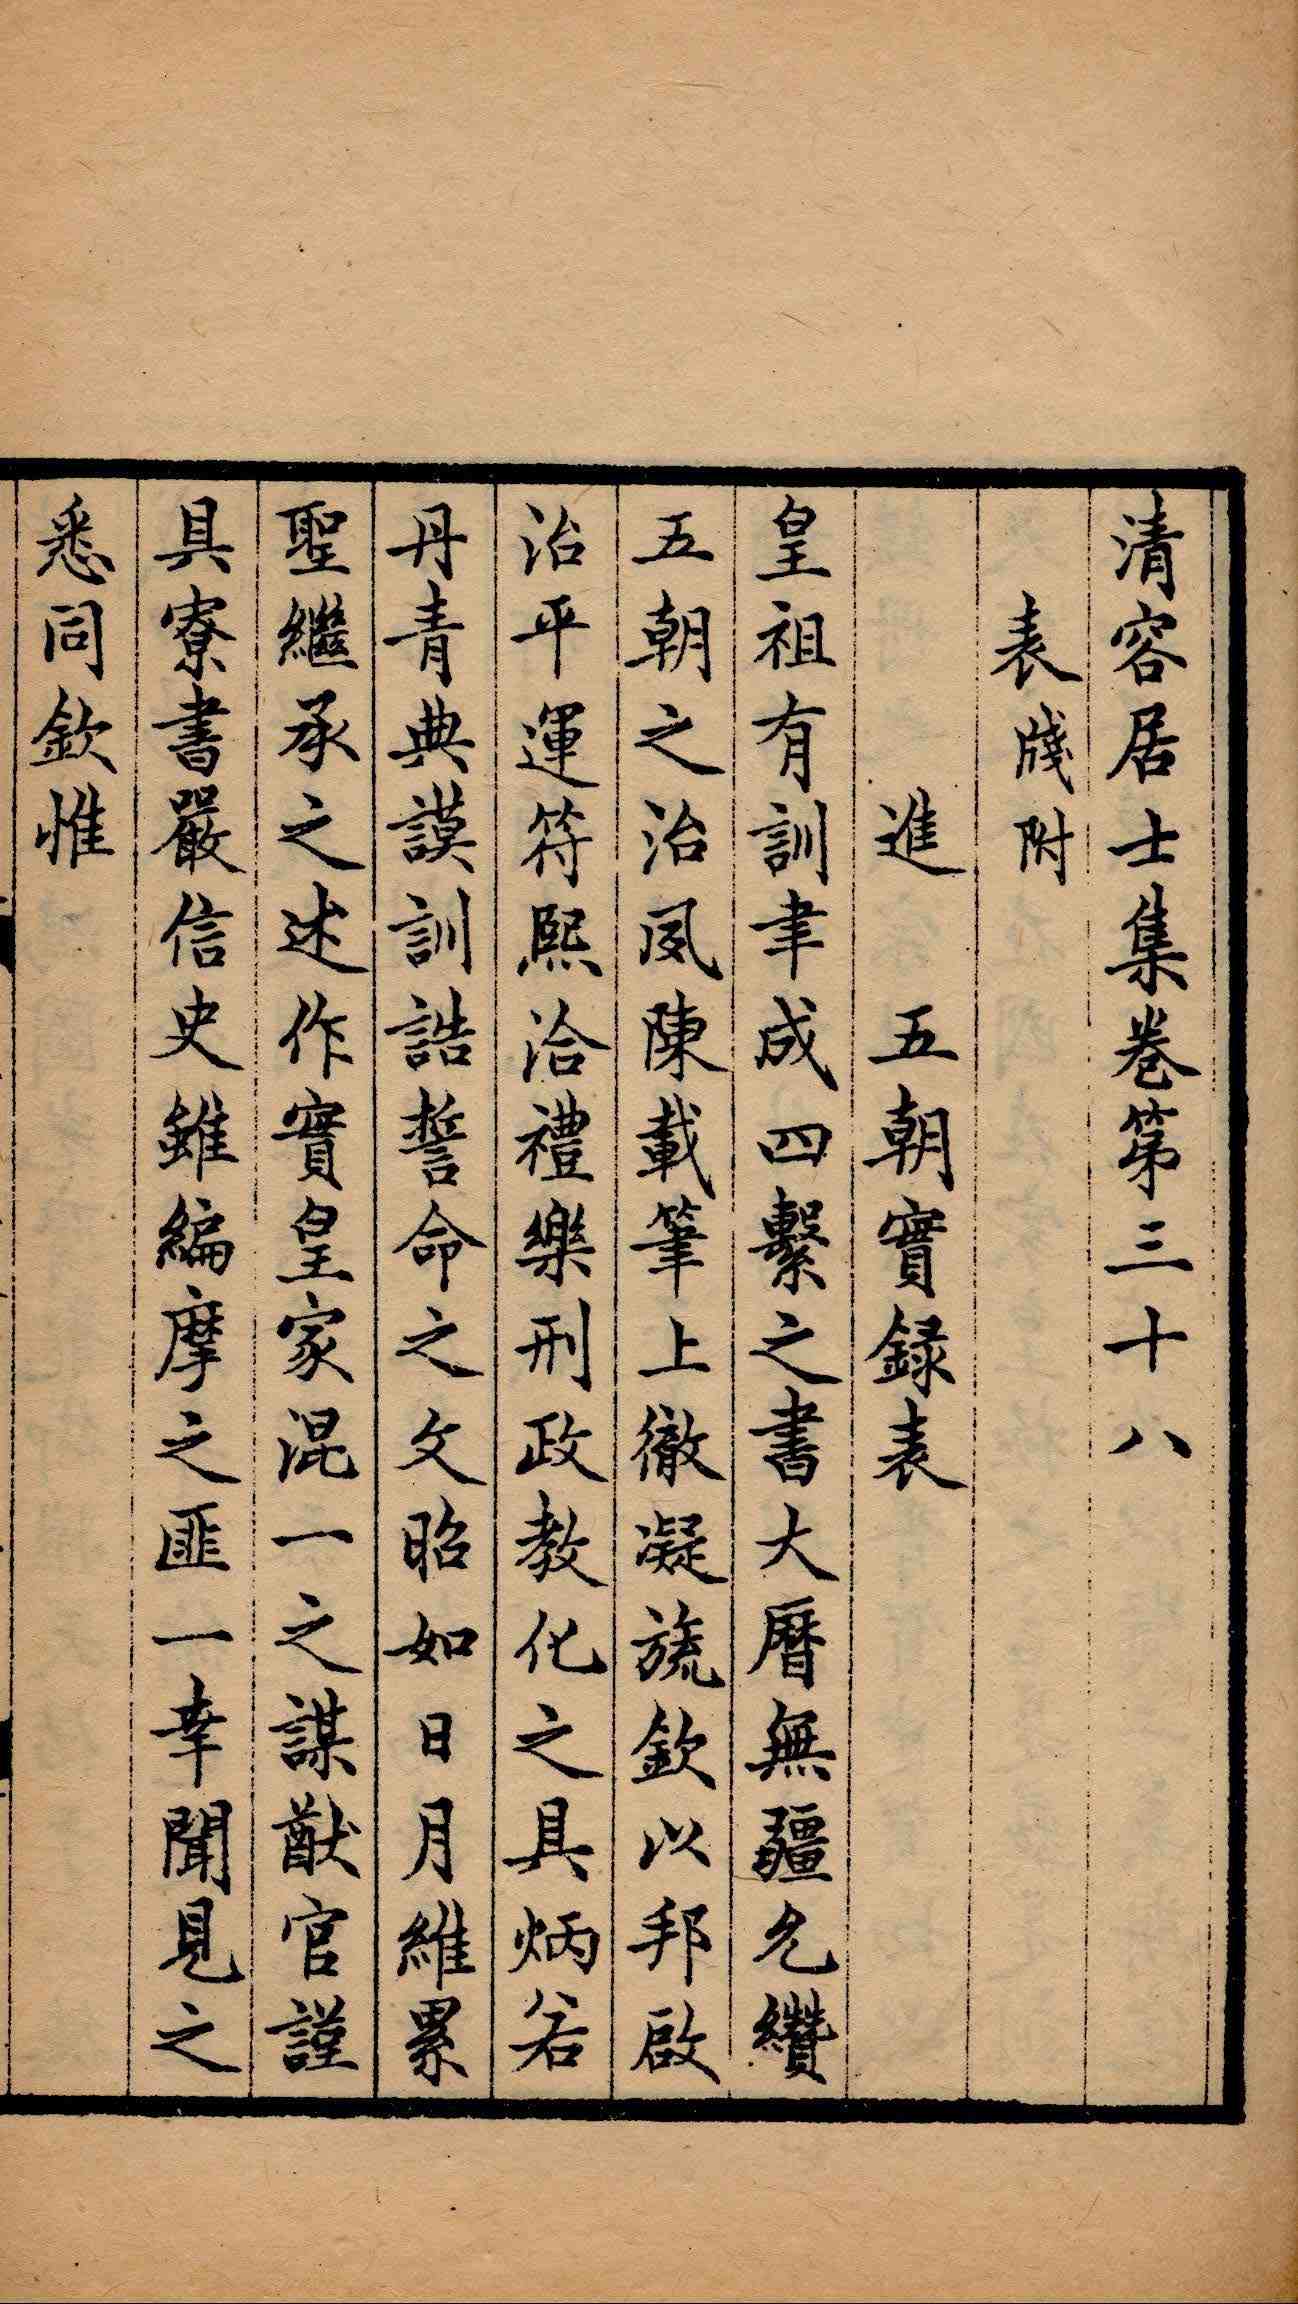 清容居士集卷第三十八
表牋附
進　五朝實録表
皇祖有訓聿成四繫之書大曆無疆允纘
五朝之治夙陳載筆上徹凝旒欽以邦啟
治平運符熙洽禮樂刑政教化之具炳若
丹青典謨訓誥誓命之文昭如日月維累
聖繼承之述作實皇家混一之謀猷官謹
具寮書嚴信史雖編摩之匪一幸聞見之
悉同欽惟